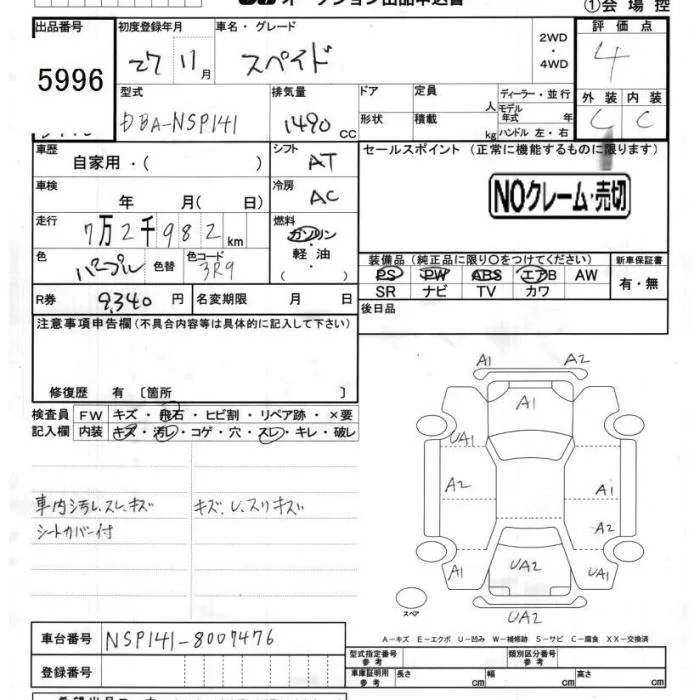 オークション出品申込書
①会場控
出品番号 初度登録年月 車名・グレード 2WD・4WD 評価点
5996 27 11月 スペイド 4
型式 排気量 ドア 定員 人 ディーラー・並行 外装 内装
DBA-NSP141 1490cc 形状 積載 kg モデル年式 年 ハンドル 左・右 C C
車歴 自家用・( ) シフト AT セールスポイント(正常に機能するものに限ります)
車検 年 月( 日) 冷房 AC NOクレーム・売切
走行 7万2千982km 燃料 ガソリン・軽油・( )
色 パープル 色替 色コード 3R9 装備品(純正品に限り○をつけてください) 新車保証書
PS PW ABS エアB AW 有・無
SR ナビ TV カワ
R券 9,340円 名変期限 月 日 後日品
注意事項申告欄(不具合内容等は具体的に記入して下さい)
修復歴 有 〔箇所 〕
検査員 FW キズ・飛石・ヒビ割・リペア跡・×要
記入欄 内装 キズ・汚レ・コゲ・穴・スレ・キレ・破レ
車内汚レ、スレ、キズ キズ、U、スリキズ
シートカバー付
A1 A2
A1
UA1
A2 A1
A2
A1 UA2 UA1
UA2
スペア
A-キズ E-エクボ U-凹み W-補修跡 S-サビ C-腐食 XX-交換済
車台番号 NSP141-8007476
登録番号
型式指定番号 参考 類別区分番号 参考
車庫証明用 参考 長さ cm 幅 cm 高さ cm